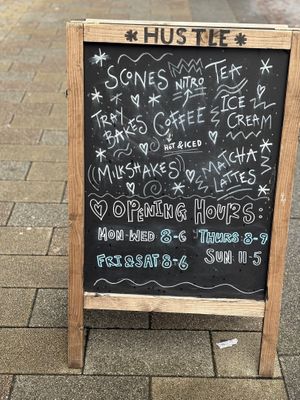 * HUSTLE *
SCONES NITRO TEA
TRAY BAKES COFFEE ICE CREAM
HOT & ICED
MILKSHAKES MATCHA LATTES
OPENING HOURS:
MON-WED 8-6 THURS 8-7
FRI & SAT 8-6 SUN 11-5